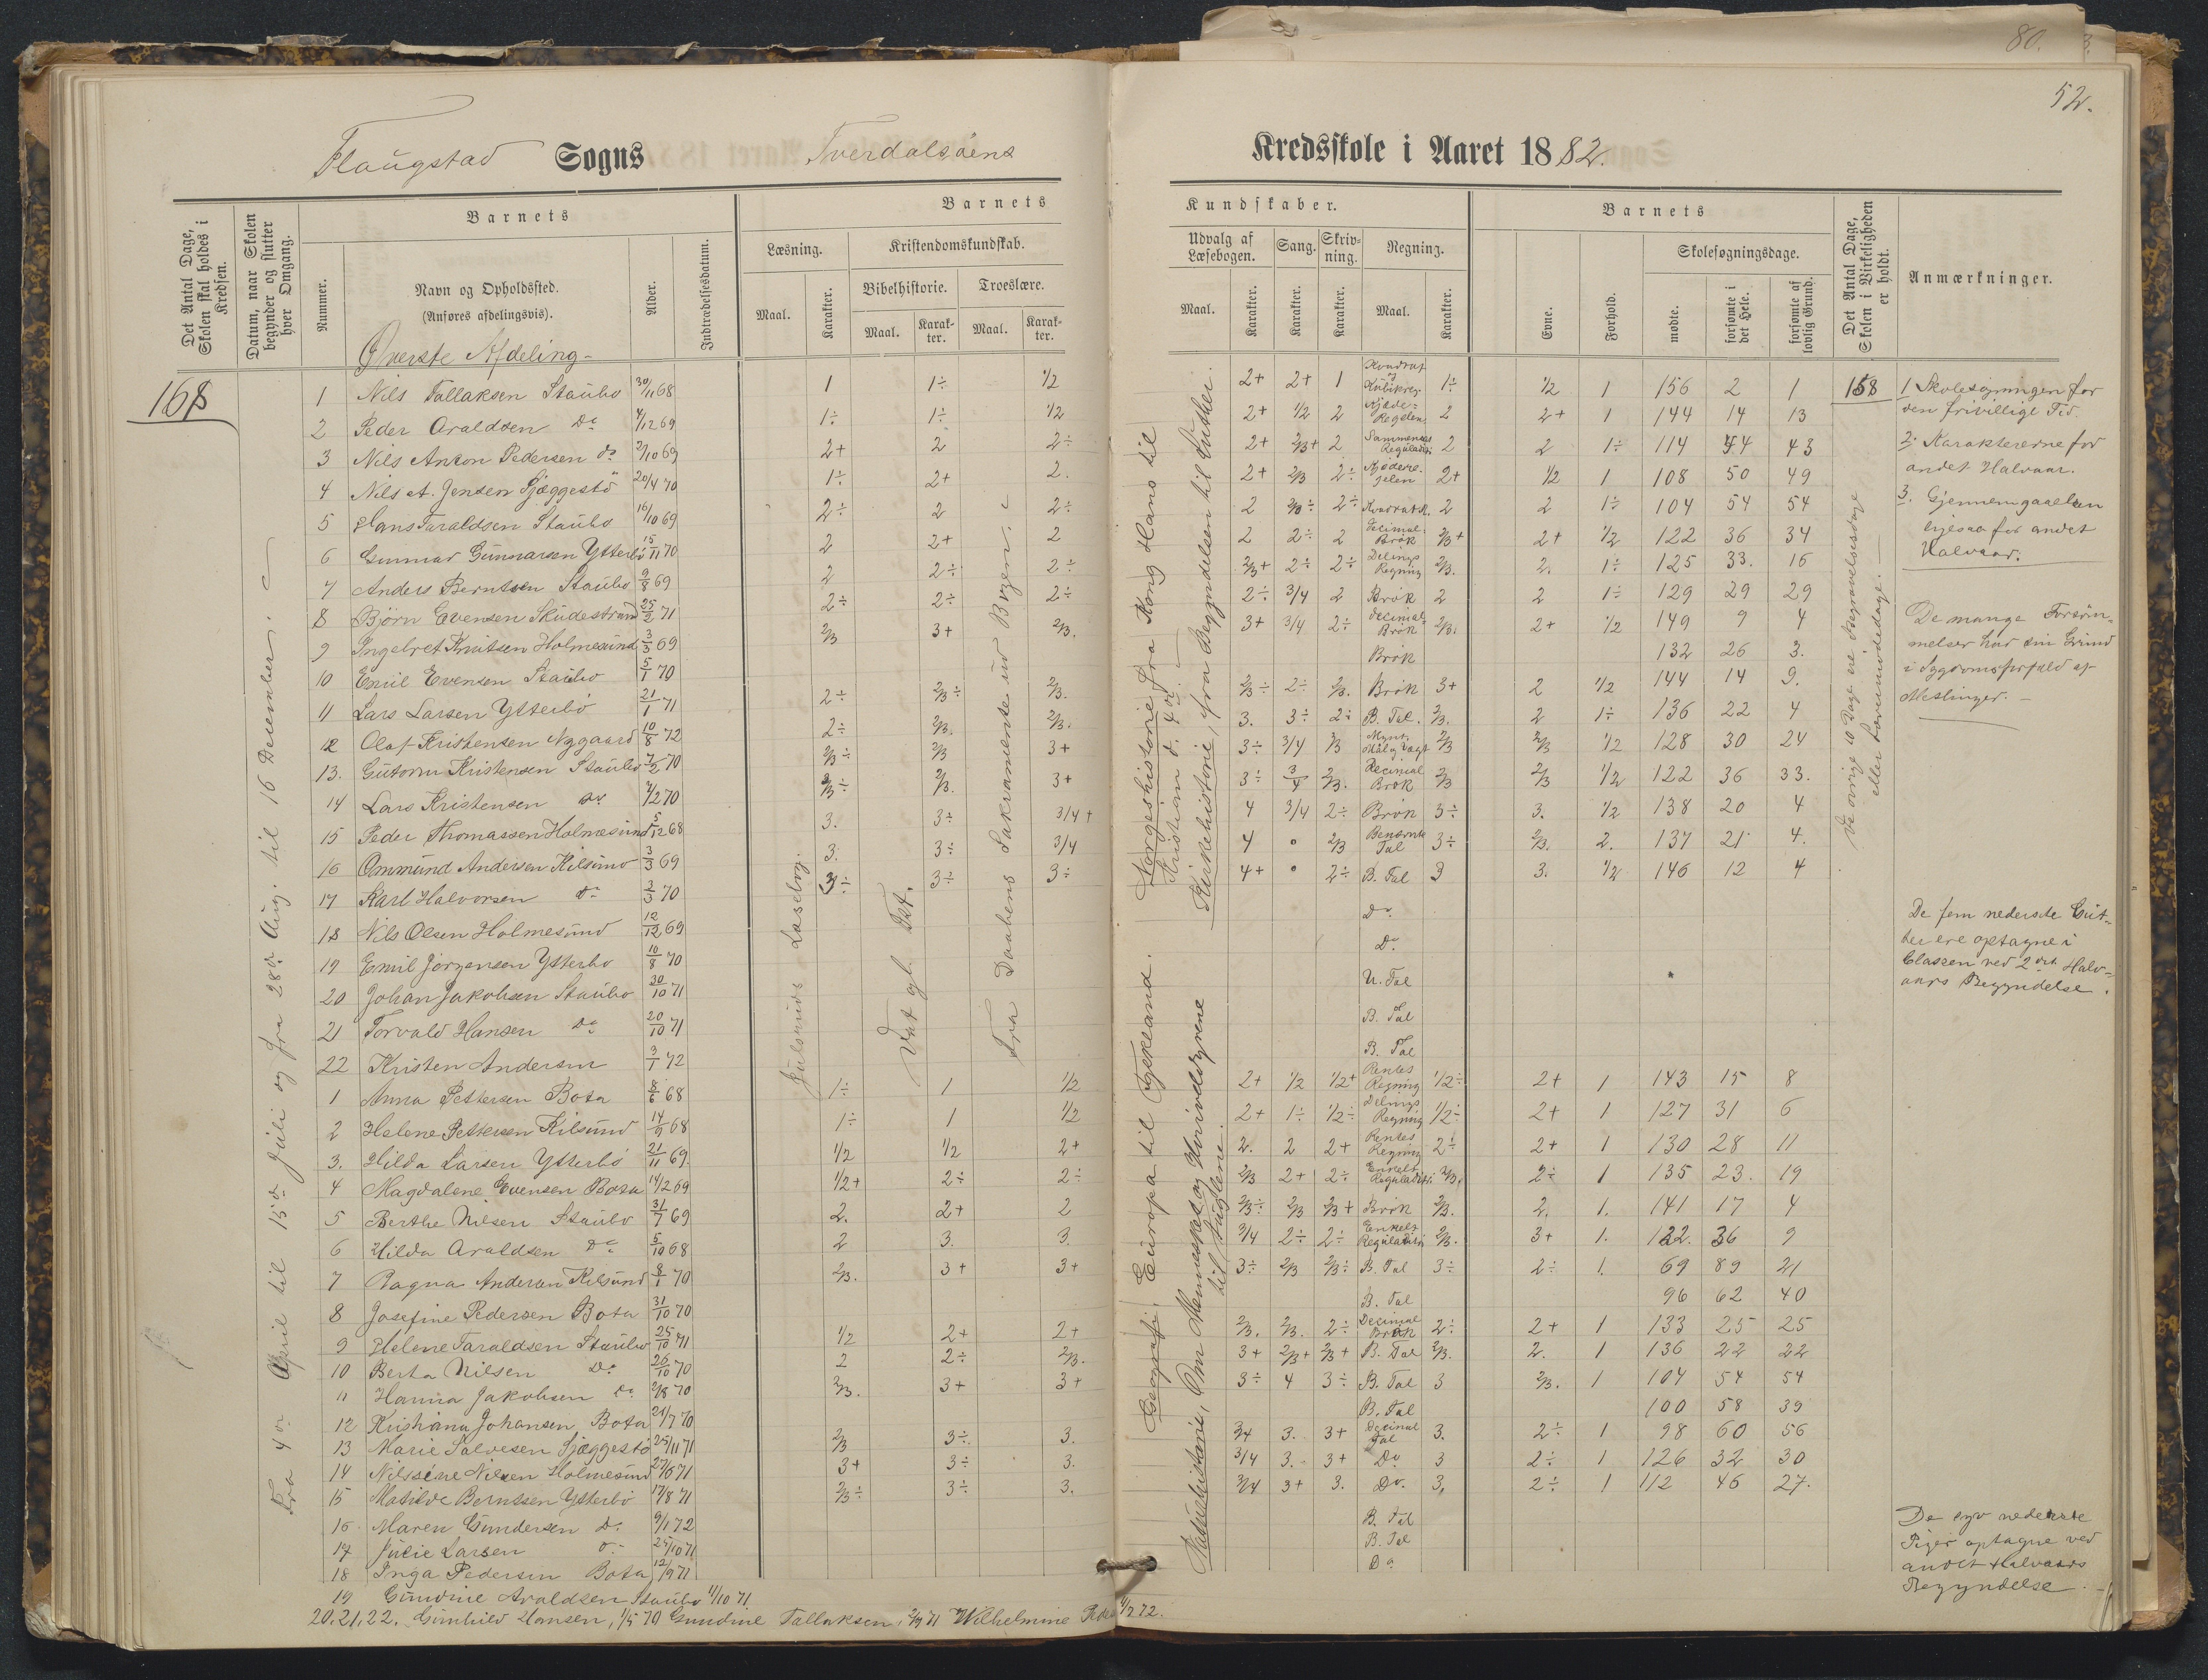 80.
52.
Flaugstad Sogns Tverdalsöens
Kredsskole i Aaret 1882.
Det Antal Dage, Skolen skal holdes i Kredsen.
Datum, naar Skolen begynder og slutter hver Omgang.
Barnets
Nummer.
Navn og Opholdssted.
(Anføres afdelingsvis).
Alder.
Indtrædelsesdatum.
Barnets
Læsning.
Maal.
Karakter.
Kristendomskundskab.
Bibelhistorie.
Maal.
Karakter.
Troeslære.
Maal.
Karakter.
Kundskaber.
Udvalg af Læsebogen.
Maal.
Karakter.
Sang.
Karakter.
Skrivning.
Karakter.
Regning.
Maal.
Karakter.
Barnets
Evne.
Forhold.
Skolesøgningsdage.
mødte.
forsømte i det Hele.
forsømte af lovlig Grund.
Det Antal Dage, Skolen i Virkeligheden er holdt.
Anmærkninger.
Øverste Afdeling
168
Fra 4de April til 15de Juli og fra 28de Aug. til 16 December.
1 Nils Tallaksen Staubo 30/11 68 1 1÷ 1/2 2+ 2+ 1 Kvadrat og Kubikreg. 1÷ 1/2 1 156 2 1 158
2 Peder Araldsen Do 4/12 69 1÷ 1÷ 1/2 2+ 1/2 2 Kjæde-Regelen 2 2+ 1 144 14 13
3 Nils Anton Pedersen do 2/10 69 2+ 2 2÷ 2+ 2/3+ 2 2 2 1÷ 114 44 43
4 Nils A. Jensen Sjæggestö 20/4 70 1÷ 2+ 2. 2+ 2/3 2÷ 2+ 1/2 1 108 50 49
5 Hans Taraldsen Staubo 16/10 69 2÷ 2 2÷ 2 2/3÷ 2÷ 2 2 1÷ 104 54 54
6 Gunnar Gunnarsen Ytterbö 15/11 70 2 2+ 2 2 2÷ 2 Decimal Brök 2/3+ 2+ 1/2 122 36 34
7 Anders Berntsen Staubo 9/8 69 2 2÷ 2÷ 2/3+ 2÷ 2÷ Delings Regning 2/3. 2. 1÷ 125 33. 16
8 Björn Evensen Skudestrand 25/2 71 2÷ 2÷ 2÷ 2÷ 3/4 2 Brök 2 2 1÷ 129 29 29
9 Ingebret Knutsen Holmesund 3/3 69 2/3 3+ 2/3. 3+ 3/4 2÷ Decimal Brök 2/3. 2+ 1/2 149 9 4
10 Emil Evensen Staubo 5/1 70 Brök 132 26 3.
11 Lars Larsen Ytterbö 21/1 71 2÷ 2/3÷ 2/3. 2/3÷ 2÷ 2/3. Brök 3+ 2 1/2 144 14 9.
12 Olaf Kristensen Nygaard 10/8 72 2÷ 2/3. 2/3. 3. 3÷ 2÷ B. Tal. 2/3. 2 1÷ 136 22 4
13. Gutorm Kristensen Staubo 7/2 70 2/3÷ 2/3 3+ 3÷ 3/4 2/3 Mynt, Maal og Vægt 2/3 2/3 1/2 128 30 24
14 Lars Kristensen Do 2/3÷ 2/3. 3+ 3÷ 3/4 2/3. Decimal Brök 2/3 2/3 1/2 122 36 33.
15 Peder Thomassen Holmesund 5/12 68 3. 3÷ 3/4+ 4 3/4 2÷ Brök 3÷ 3. 1/2 138 20 4
16 Ommund Andersen Kilsund 3/3 69 3. 3÷ 3/4 4 " 2/3 Benævnte Tal 3÷ 2/3. 2. 137 21 4.
17 Karl Halvorsen do 2/3 70 3÷ 3÷ 3÷ 4+ " 2÷ B. Tal 3 3. 1/2 146 12 4
18 Nils Olsen Holmesund 12/12 69 Do
19 Emil Jörgensen Ytterbo 10/8 70 Do
20 Johan Jakobsen Staubo 30/10 71 U. Tal
21 Torvald Hansen do 20/10 71 B. Tal
22 Kristen Andersen 3/1 72 B. Tal
1 Anna Pettersen Bota 6/6 68 1÷ 1 1/2 2+ 1/2 1/2+ Rentes Regning 1/2÷ 2+ 1 143 15 8
2 Helene Pettersen Kilsund 14/9 68 1÷ 1 1/2 2+ 1÷ 1/2÷ Delings Regning 1/2÷ 2+ 1 127 31 6
3. Hilda Larsen Ytterbö 21/11 69. 1/2 1/2 2+ 2. 2 2+ Rentes Regning 2÷ 2+ 1 130 28 11
4 Magdalene Evensen Bota 14/2 69 1/2+ 2÷ 2÷ 2/3 2+ 2÷ Enkelt Reguladetri 2/3. 2÷ 1 135 23. 19
5 Berthe Nilsen Staubo 31/7 69 2. 2+ 2 2/3÷ 2/3 2/3+ Brök 2/3. 2. 1. 141 17 4
6 Hilda Araldsen Do 5/10 68 2 3. 3. 3/4 2÷ 2÷ Enkelt Reguladetri 2/3. 3+ 1. 122. 36 9
7 Ragna Andersen Kilsund 8/1 70 2/3. 3+ 3+ 3÷ 2/3 2/3÷ B. Tal 3÷ 2÷ 1. 69 89 21
8 Josefine Pedersen Bota 31/10 70 B. Tal 96 62 40
9 Helene Taraldsen Staubo 25/10 71 1/2 2+ 2+ 2/3. 2/3. 2÷ Decimal Brök 2÷ 2+ 1 133 25 25
10 Berta Nilsen Do 26/10 70 2 2÷ 2/3. 3+ 2/3+ 2/3+ B. Tal 2/3. 2. 1 136 22 22
11 Hanna Jakobsen do 2/8 70 2/3. 3+ 3+ 3÷ 4 3÷ B. Tal 3 2/3. 1 104 54 54
12 Kristiana Johansen Bota 21/7 70 B. Tal 100 58 39
13 Marie Salvesen Sjæggestö 25/11 71 2/3 3÷ 3. 3/4 3. 3+ Decimal Tal 3. 2÷ 1 98 60 56
14 Nilssine Nilsen Holmesund 27/6 71 3+ 3÷ 3. 3/4 3. 3+ Do 3 2÷ 1 126 32 30
15 Matilde Berntsen Ytterbö 17/8 71 2/3÷ 3÷ 3. 3/4 3+ 3. Do. 3, 2÷ 1 112 46 27.
16. Maren Gundersen Do 9/1 72 B. Tal
17 Julie Larsen do 25/10 71 B. Tal
18 Inga Pedersen Bota 12/9 71 Do
19 Gundine Araldsen Staubo 11/10 71
20. 21, 22. Gunhild Hansen, 1/5 70 Gundine Tallaksen, 2/9 71 Wilhelmine 1/2 72.
Julsruds Læsebog.
Vogt gl. Test.
Fra Daabens Saksamente ud Bogen.
Norgeshistorie fra Kong Hans til Kristian d. 4de.
Kirkehistorie, fra Begyndelsen til Luther.
Geografi. Europa til Tydskland.
Naturhistorie, Om Mennesket og Hvirveldyrene til Fuglene.
De övrige 10 Dage ere Begravelsesdage eller
1 Skolesögningen for
den frivillige Tid.
2. Karaktererne for
andet Halvaar.
3. Gjennemgaaelsen
ligesaa for andet
Halvaar.
De mange Forsöm-
melser har sin Grund
i Sygdomsforfald af
Meslinger.
De fem nederste Gut-
ter ere optagne i
Classen ved 2det Halv-
aars Begyndelse.
De syv nederste
Piger optagne ved
andet Halvaars
Begyndelse.